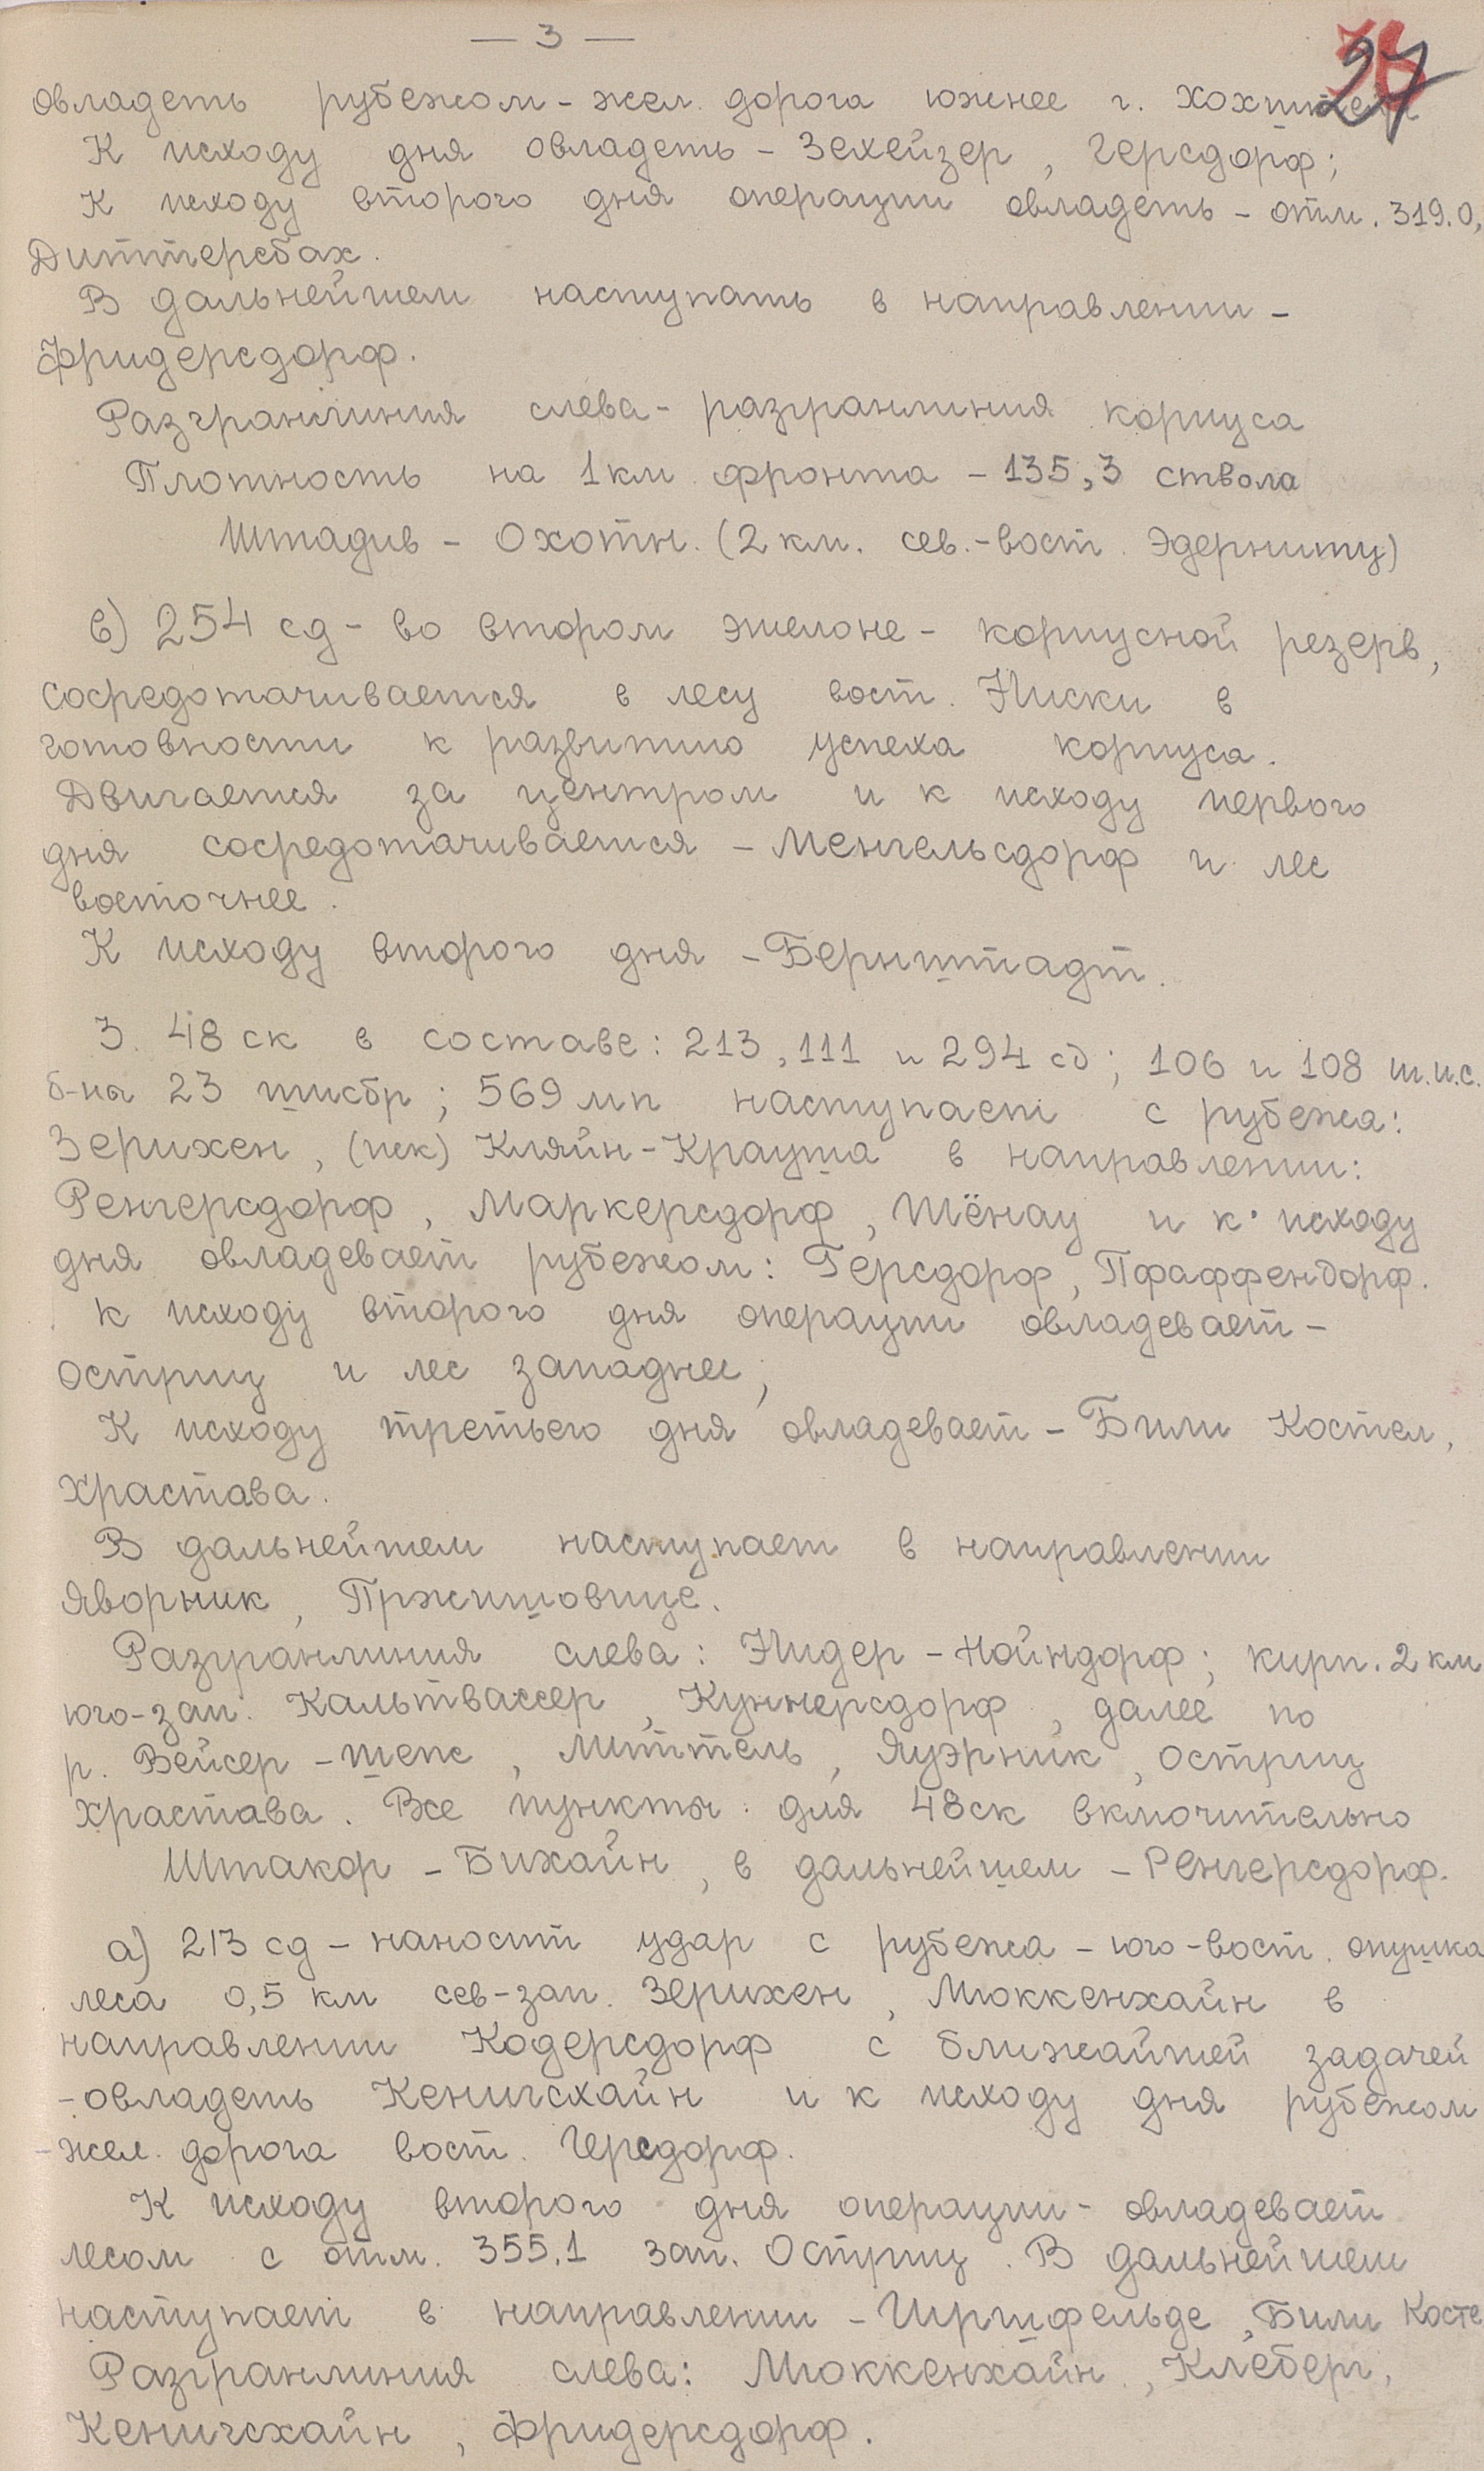 — 3 —
27
овладеть рубежом - жел. дорога южнее г.
К исходу дня овладеть - Зехейзер, Герсдорф;
К исходу второго дня операции овладеть - отм. 319.0,
Диттерсбах.
В дальнейшем наступать в направлении -
Фридерсдорф.
Разгранлиния слева - разгранлиния корпуса
Плотность на 1 км фронта - 135,3 ствола
Штадив - Охотн. (2 км. сев.-вост. Эдерниту)
в) 254 сд - во втором эшелоне - корпусной резерв,
сосредотачивается в лесу вост. Ниски в
готовности к развитию успеха корпуса.
Двигается за центром и к исходу первого
дня сосредотачивается - Менгельсдорф и лес
восточнее.
К исходу второго дня - Бернштадт.
3. 48 ск в составе: 213, 111 и 294 сд; 106 и 108 ш.и.с.
б-на 23 шисбр; 569 мп наступает с рубежа:
Зерихен, (иск) Кляйн-Крауша в направлении:
Ренгерсдорф, Маркерсдорф, Шёнау и к исходу
дня овладевает рубежом: Герсдорф, Пфаффендорф.
к исходу второго дня операции овладевает -
Остриц и лес западнее;
К исходу третьего дня овладевает - Били Костел,
Храстава.
В дальнейшем наступает в направлении
Яворник, Пржишовице.
Разгранлиния слева: Нидер - Нойндорф; кирп. 2 км
юго-зап. Кальтвассер, Куннерсдорф, далее по
р. Вейсер - шепс, Миттель, Яуэрник, Остриц
Храстава. Все пункты для 48ск включительно
Штакор - Бихайн, в дальнейшем - Ренгерсдорф.
а) 213 сд - наносит удар с рубежа - юго-вост. опушка
леса 0,5 км сев-зап. Зерихен, Мюккенхайн в
направлении Кодерсдорф с ближайшей задачей
- овладеть Кенигсхайн и к исходу дня рубежом
- жел. дорога вост. Герсдорф.
К исходу второго дня операции - овладевает
лесом с отм. 355.1 зап. Остриц. В дальнейшем
наступает в направлении - Гиршфельде, Били Косте
Разгранлиния слева: Мюккенхайн, Клеберг,
Кенигсхайн, Фридерсдорф.